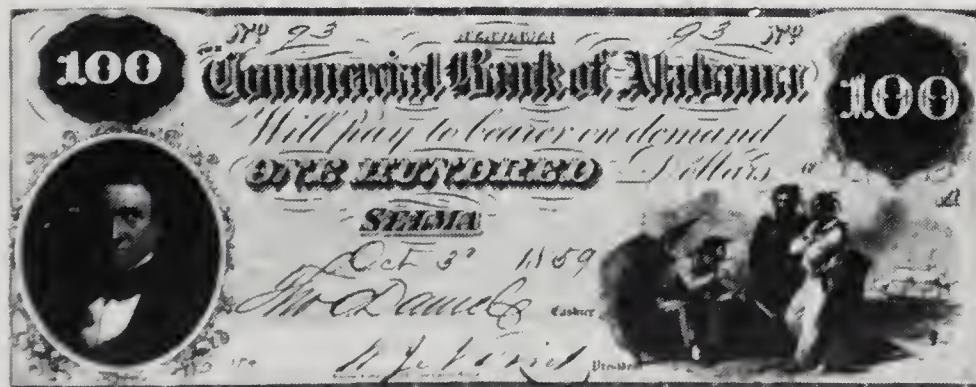 No 93 93 No
100 Commercial Bank of Alabama 100
Will pay to bearer on demand
ONE HUNDRED Dollars
SELMA
Oct 3d 1859
Cashier
President